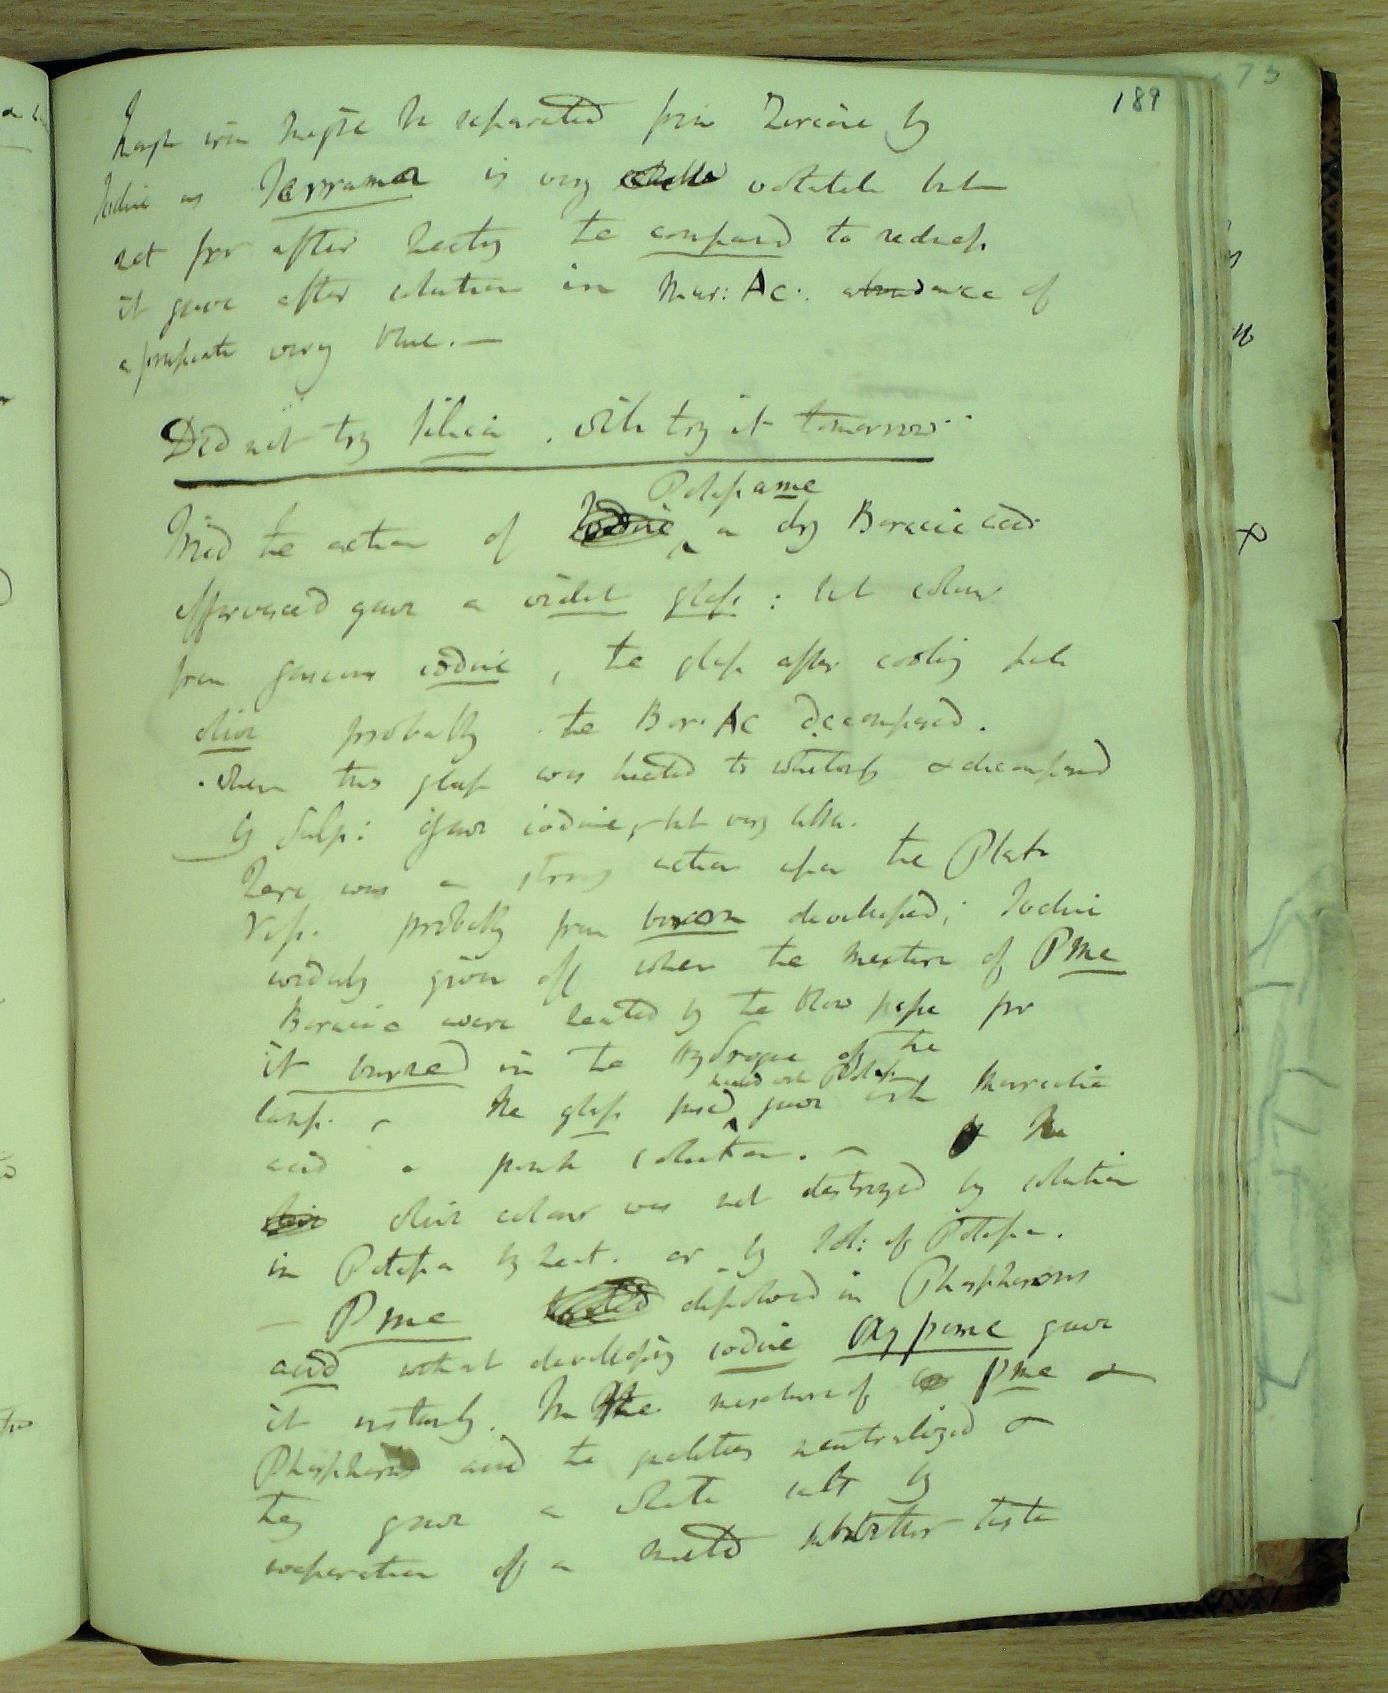 189
73
Thought iron might be separated from Zircone by
Iodine as Ferrama is very volatile but
not for after heating the compound to redness
it gave after solution in Mur: Ac: abundance of
a precipitate very blue. —
Did not try silica . will try it tomorrow.
Potassame
Tried the action of Iodine ^ on dry Boracic acid
effervesced gave a violet glass : but colour
from gaseous iodine , the glass after cooling pale
olive probably the Bor. Ac decomposed .
when this glass was heated to whiteness & decomposed
by Sulp: gave iodine, but very little.
There was a strong action upon the Platn
Vess. probably from boron developed; Iodine
evidently given off when the mixture of Pme
Boracic were heated by the blow pipe for
it burned in the Hydrogene of the
lamp. — The glass fused ^ gave with Muriatic
heated with Potash
acid a pink solution. — The
olive olive colour was not destroyed by solution
in Potassa by heat . or by Sol: of Potassa .
— Pme heated dissolved in Phosphorous
acid without developing iodine Oxypme gave
it instantly. In the mixture of Pme &
Phosphorous acid the neutralized &
they gave a white salt by
evaporation of a taste